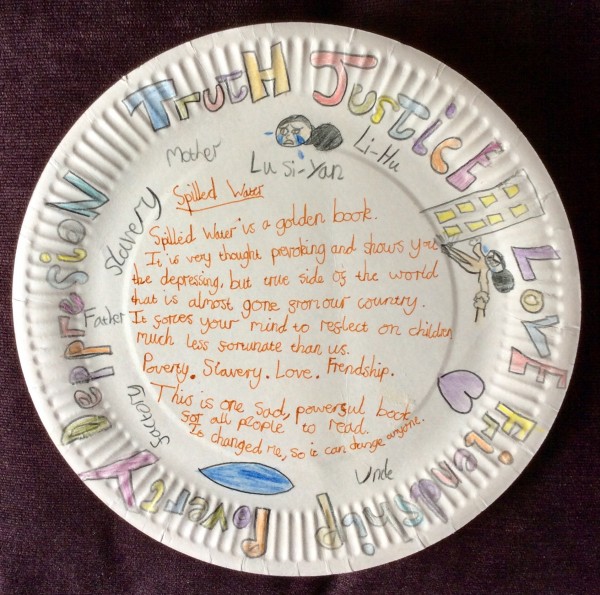 Truth
Justice
Love
Friendship
Poverty
Deppression
Mother
Lu Si-Yan
Li-Hu
Slavery
Father
factory
Uncle
Spilled Water
Spilled Water is a golden book.
It is very thought provoking and shows you
the depressing, but true side of the world
that is almost gone from our country.
It forces your mind to reflect on children
much less fortunate than us.
Poverty. Slavery. Love. Frendship.
This is one sad, powerful book
for all people to read.
It changed me, so it can change anyone.